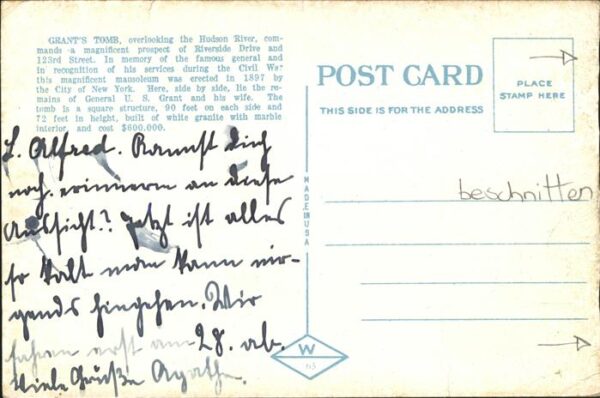 GRANT'S TOMB, overlooking the Hudson River, com-
mands a magnificent prospect of Riverside Drive and
123rd Street. In memory of the famous general and
in recognition of his services during the Civil War
this magnificent mausoleum was erected in 1897 by
the City of New York. Here, side by side, lie the re-
mains of General U. S. Grant and his wife. The
tomb is a square structure, 90 feet on each side and
72 feet in height, built of white granite with marble
interior, and cost $600,000.
L. Alfred. Kannst Dich
noch erinnern an diese
Aussicht? Jetzt ist alles
so kalt man kann nir-
gends hingehen. Wir
fahren erst am 28. ab.
Viele Grüße Agathe.
MADE IN USA
W
63
POST CARD
THIS SIDE IS FOR THE ADDRESS
PLACE
STAMP HERE
beschnitten